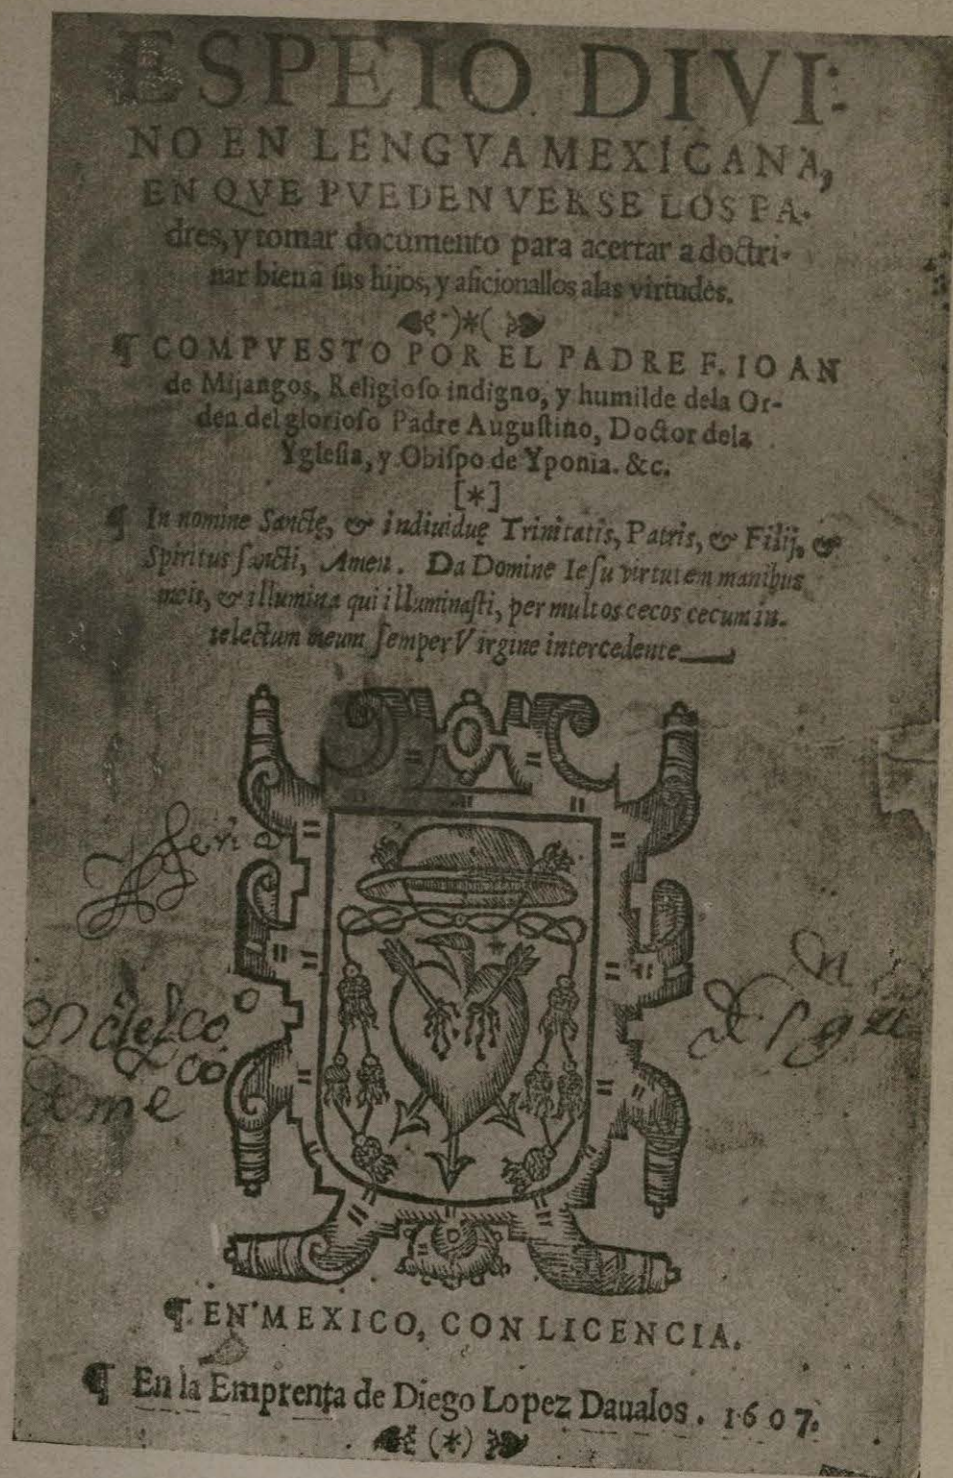 ESPEIO DIVI-
NO EN LENGVA MEXICANA,
EN QVE PVEDEN VERSE LOS PA-
dres, y tomar documento para acertar a doctri-
nar bien a sus hijos, y aficionallos a las virtudes.
)*(
¶ COMPVESTO POR EL PADRE F. IOAN
de Mijangos, Religioſo indigno, y humilde dela Or-
den del glorioſo Padre Auguſtino, Doctor dela
Ygleſia, y Obiſpo de Yponia. &c.
[*]
¶ In nomine Sanctę, & indiuiduę Trinitatis, Patris, & Filij, &
Spiritus ſancti, Amen. Da Domine Ieſu virtutem manibus
meis, & illumina qui illuminaſti, per multos cecos cecum in-
telectum meum ſemper Virgine intercedente
¶ EN MEXICO, CON LICENCIA.
¶ En la Emprenta de Diego Lopez Daualos. 1607.
(*)